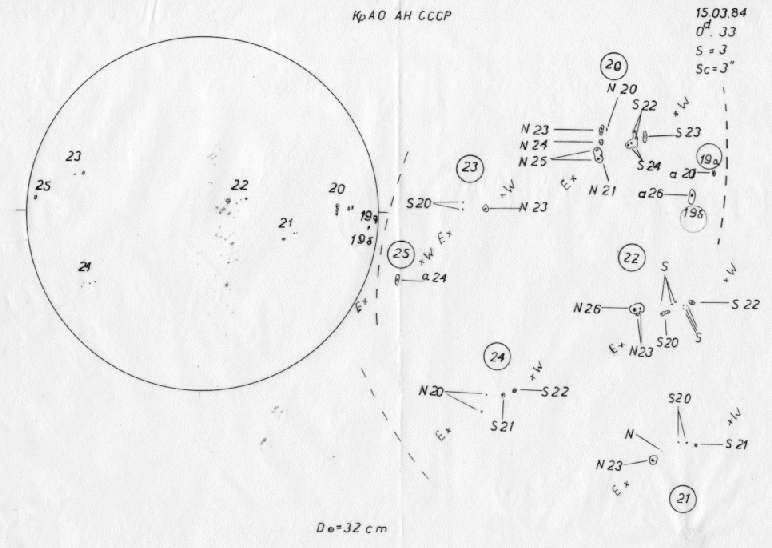 КрАО АН СССР
15.03.84
0d.33
S = 3
Sc = 3"
23
25
22
20
19а
19б
21
24
20
N 20
S 22
×W
N 23
S 23
N 24
N 25
S 24
N 21
E×
19а
а 20
а 26
19б
23
×W
S20
N 23
E×
25
×W
а 24
E×
22
S
×W
N26
S 22
S20
S
E×
N23
24
×W
N20
S22
S21
E×
S20
×W
N
S21
N 23
E×
21
D⊙=32 cm